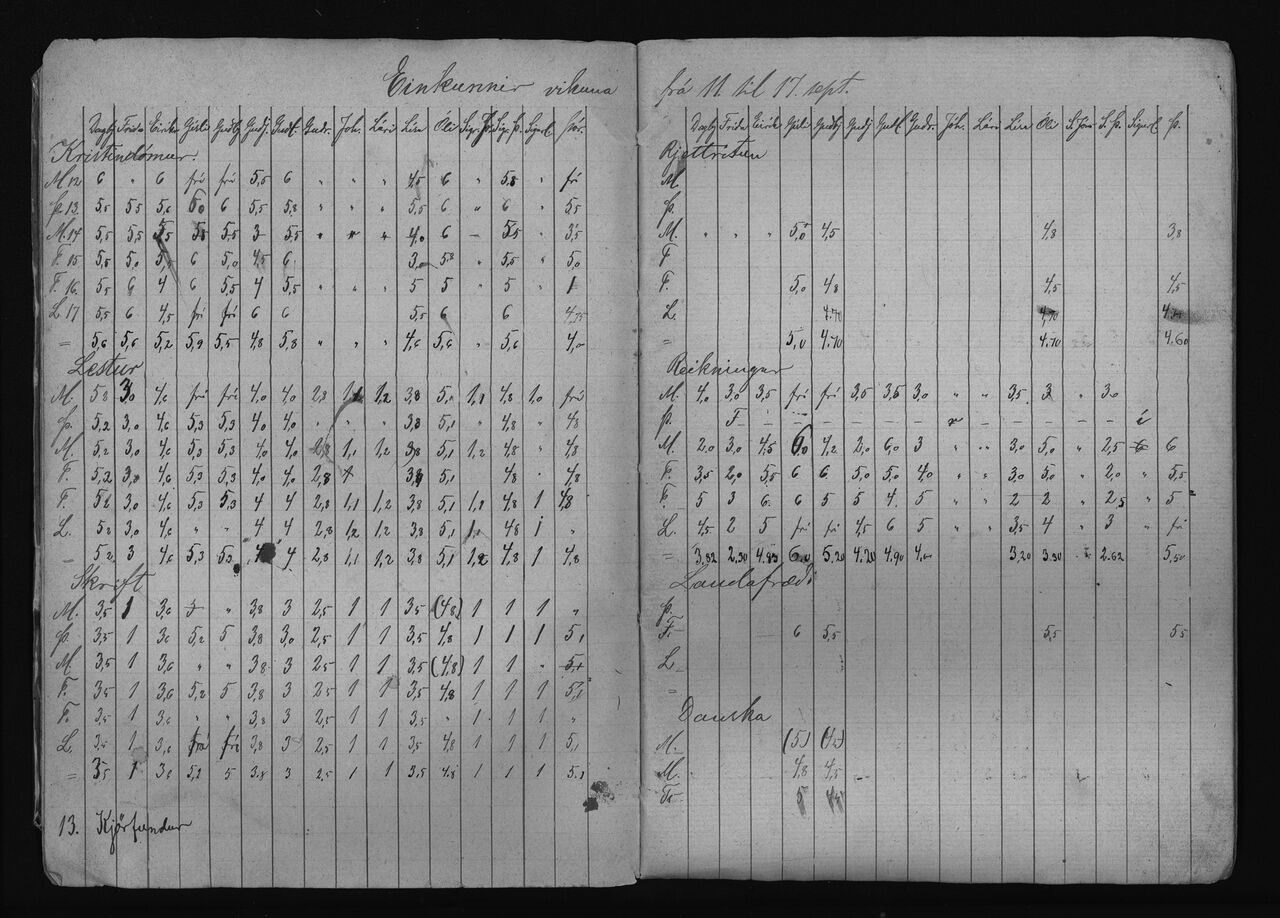 Einkunnir vikuna
Dagbj Frida Eirik Guðbj Gudj Gudl Gudr. Joh. Lári Lire Óli Þór.
Kristindómur.
M 12 6 " 6 frí frí 5,5 6 " " " 4,5 6 " 5,8 " frí
Þ. 13. 5,5 5,5 5,6 5,0 6 5,5 5,8 " " " 5,5 6 " 6 " 5,5
M. 14 5,5 5,5 5,5 5,5 5,5 3 5,5 " " " 4,0 6 - 5,5 " 3,5
F. 15 5,5 5,0 5,5 6 5,0 4,5 6 3,0 5,8 " 5,5 " 5,0
F. 16. 5,5 6 4 6 5,5 4 5,5 " " " 5 5 " 5 " 1
L. 17 5,5 6 4,5 frí frí 6 6 5,5 6 6 4,75
= 5,6 5,6 5,2 5,9 5,5 4,8 5,8 " " " 4,6 5,6 " 5,6 4,0
Lestur
M. 5,2 3,0 4,6 frí frí 4,0 4,0 2,8 1,2 3,8 5,1 1,1 4,8 1,0 frí
Þ. 5,2 3,0 4,6 5,3 5,3 4,0 4,0 " " " 3,8 5,1 " 4,8 " 4,8
M. 5,2 3,0 4,6 5,3 5,3 4,0 4,0 2,8 1,1 1,2 3,8 5,1 1,2 4,8 " 4,8
F. 5,2 3,0 4,6 5,3 5,3 4,0 4,0 2,8 5,1 4,8 " 4,8
F. 5,2 3,0 4,6 5,3 5,3 4 4 2,8 1,1 1,2 3,8 5,1 4,8 1 4,8
L. 5,8 3,0 4,6 " " 4 4 2,8 1,2 1,2 3,8 5,1 4,8 1 "
- 5,2 3 4,6 5,3 5,2 4 4 2,8 1,1 1,2 3,8 5,1 1,2 4,8 1 4,8
Skrift
M. 3,5 1 3,6 " 3,8 3 2,5 1 1 3,5 (4,8) 1 1 1 "
Þ. 3,5 1 3,6 5,2 5 3,8 3,0 2,5 1 1 3,5 4,8 1 1 1 5,1
M. 3,5 1 3,6 " " 3,8 3 2,5 1 1 3,5 (4,8) 1 1 " 5,1
F. 3,5 1 3,6 5,2 5 3,8 3 2,5 1 1 3,5 4,8 1 1 1 5,1
F. 3,5 1 3,6 " " 3,8 3 2,5 1 1 3,5 " 1 1 1 "
L. 3,5 1 3,6 frí frí 3,8 3 2,5 1 1 3,5 4,8 1 1 1 5,1
= 3,5 1 3,6 5,2 5 3,8 3 2,5 1 1 3,5 4,8 1 1 1 5,1
13. Kjörfundur
frá 11 til 17. sept.
Dagbj Frida Eirik Guðbj Gudj Gudl Gudr. Jóh. Lári Lire Óli S. Jóns S. Þ. Þ.
Rjettritun
M.
Þ.
M. " " " 5,0 4,5 4,8 3,8
F
F. 5,0 4,8 4,5 4,5
L. 4.70 4,70
= 5,0 4.70 4.70 4.60
Reikningur
M. 4,0 3,0 3,5 frí frí 3,5 3,5 3,0 " " 3,5 3 " 3,0
Þ. F
M. 2,0 3,0 4,5 6,0 4,2 2,0 6,0 3 " " 3,0 5,0 " 2,5 6 6
F. 3,5 2,0 5,5 6 6. 5,0 5,0 4,0 " " 3,0 5,0 " 2,0 " 5,5
F. 5 3 6. 6 5 5 4. 5 " " 2 2 " 2,5 " 5
L. 4,5 2 5 frí frí 4,5 6 5 " " 3,5 4 " 3 " frí
= 3,82 2,50 4.83 6.0 5.20 4.20 4.90 4.0 3.20 3.80 " 2.62 5,50
Landafræði
Þ.
F. 6 5,5 5,5 5,5
L.
=
Danska
M. (5)
M. 4,8 4,5
F. 5